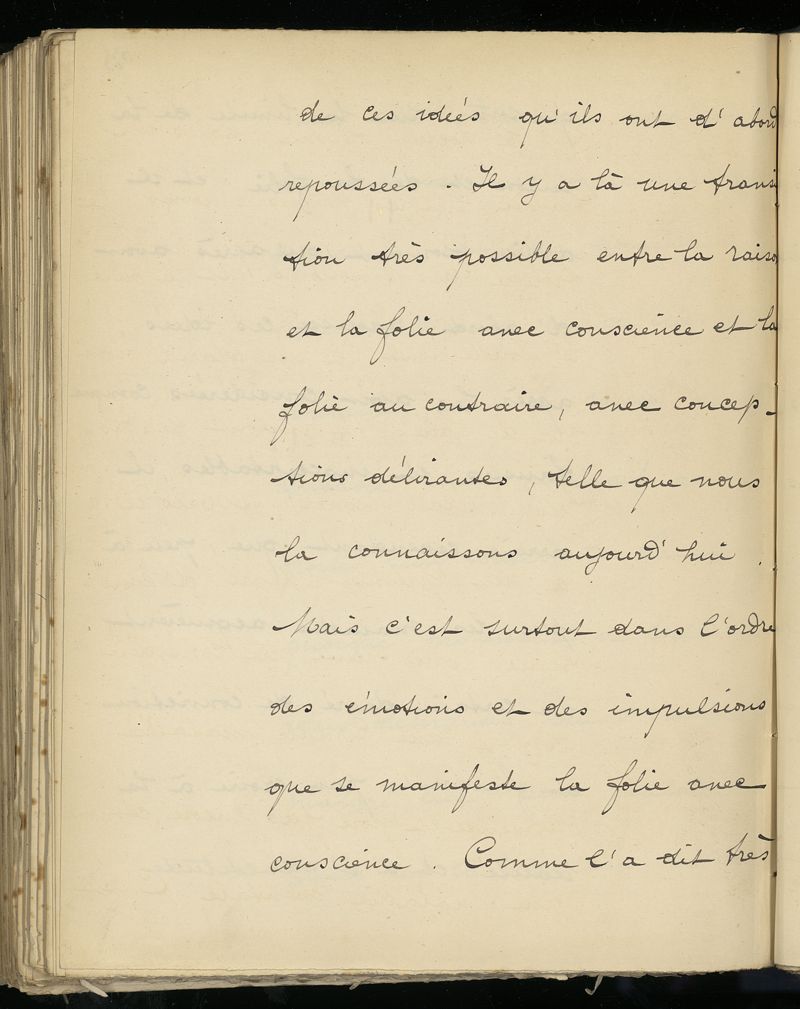 de ces idées qu'ils ont d'abord
repoussées. Il y a là une transi
tion très possible entre la raison
et la folie avec conscience et la
folie au contraire, avec concep-
tions délirantes, telle que nous
la connaissons aujourd'hui.
Mais c'est surtout dans l'ordre
des émotions et des impulsions
que se manifeste la folie avec
conscience. Comme l'a dit très